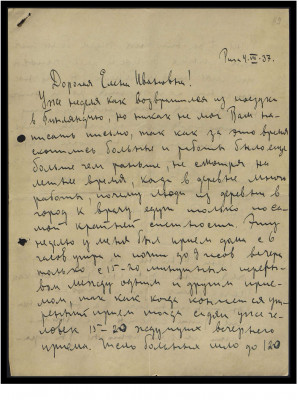 Рига 4.VII-37.
Дорогая Елена Ивановна!
Уже неделя как возвратился из поездки
в Финляндию, но никак не мог Вам на-
писать письмо, так как за это время
скопились больные и работы было еще
больше чем раньше, не смотря на
летнее время, когда в деревне много
работы, почему люди из деревни в
город к врачу едут только по са-
мой крайней спешности. Эту
неделю у меня был прием дома с 6
часов утра и почти до 9 часов вечера
только с 15-20 минутным переры-
вом между одним и другим прие-
мом, так как когда кончается ут-
ренний прием тогда сидят уже че-
ловек 15-20 ждущих вечернего
приема. Число больных шло до 120